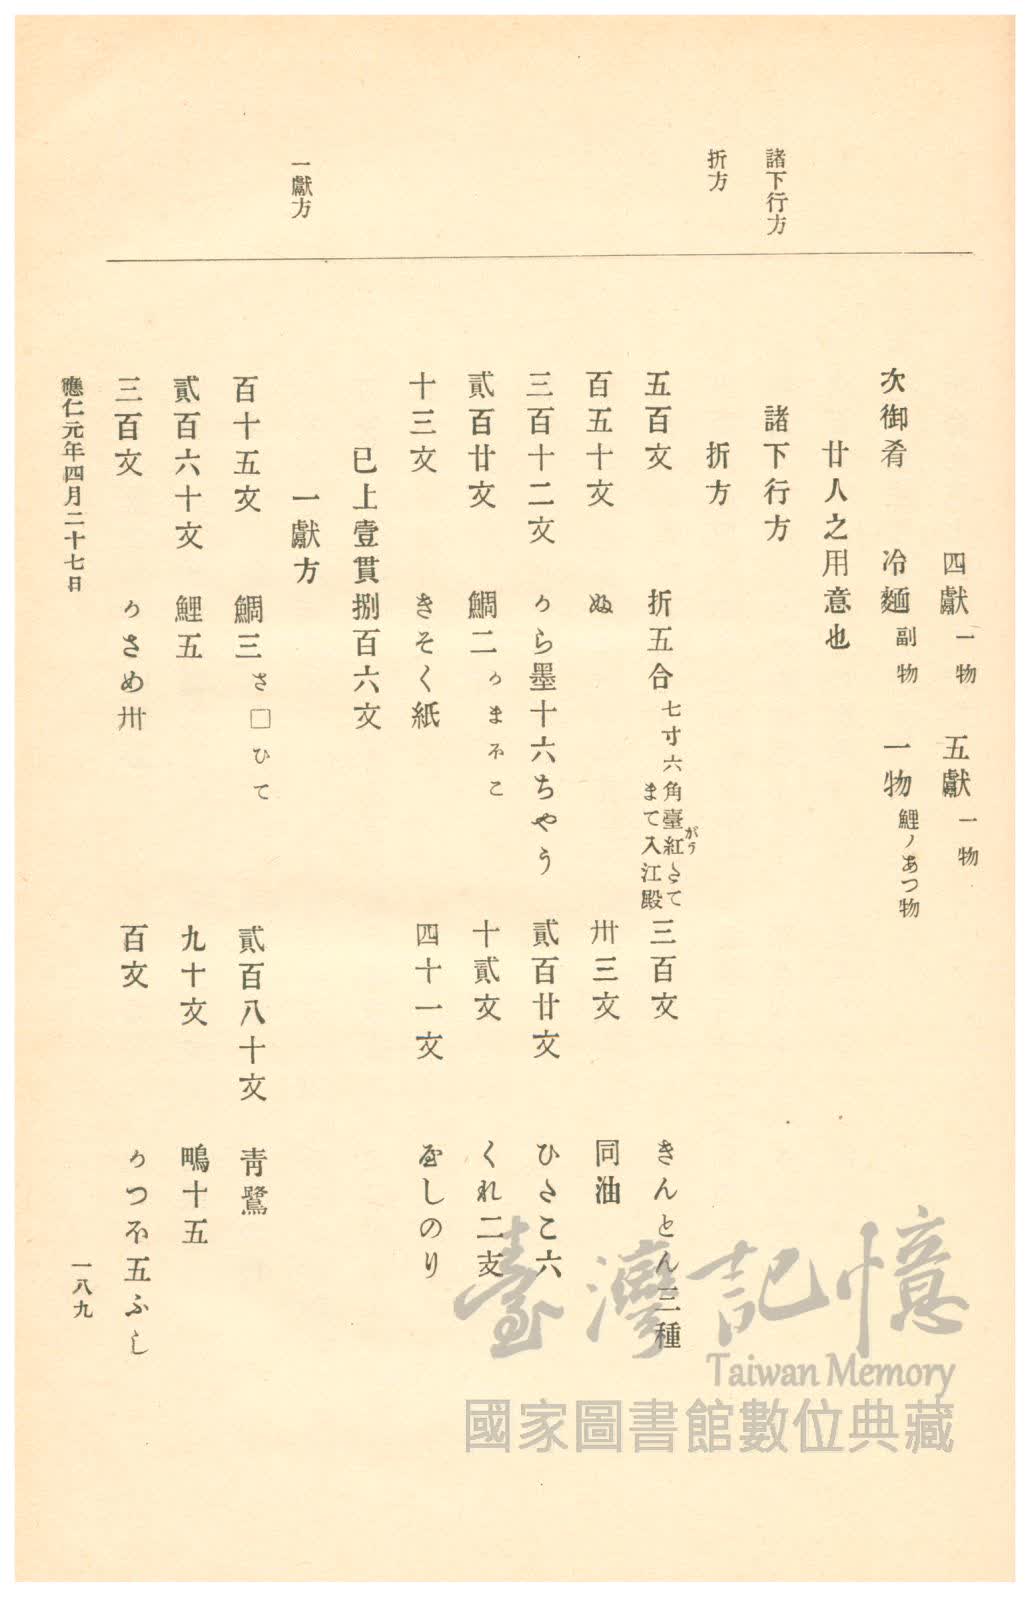 諸下行方
折方
一獻方
四獻一物　五獻一物
次御肴　冷麵副物　一物鯉ノあつ物
廿人之用意也
諸下行方
折方
五百文　折五合七寸六角臺紅さて
がう
まて入江殿
三百文　きんとん三種
百五十文　ぬ　卅三文　同油
三百十二文　から墨十六ちやう　貳百廿文　ひさこ六
貳百廿文　鯛二かまほこ　十貳文　くれ二支
十三文　きそく紙　四十一文　めしのり
已上壹貫捌百六文
一獻方
百十五文　鯛三さ□ひて　貳百八十文　靑鷺
貳百六十文　鯉五　九十文　鴫十五
三百文　かさめ卅　百文　かつほ五ふし
應仁元年四月二十七日
一八九
臺灣記憶
Taiwan Memory
國家圖書館數位典藏